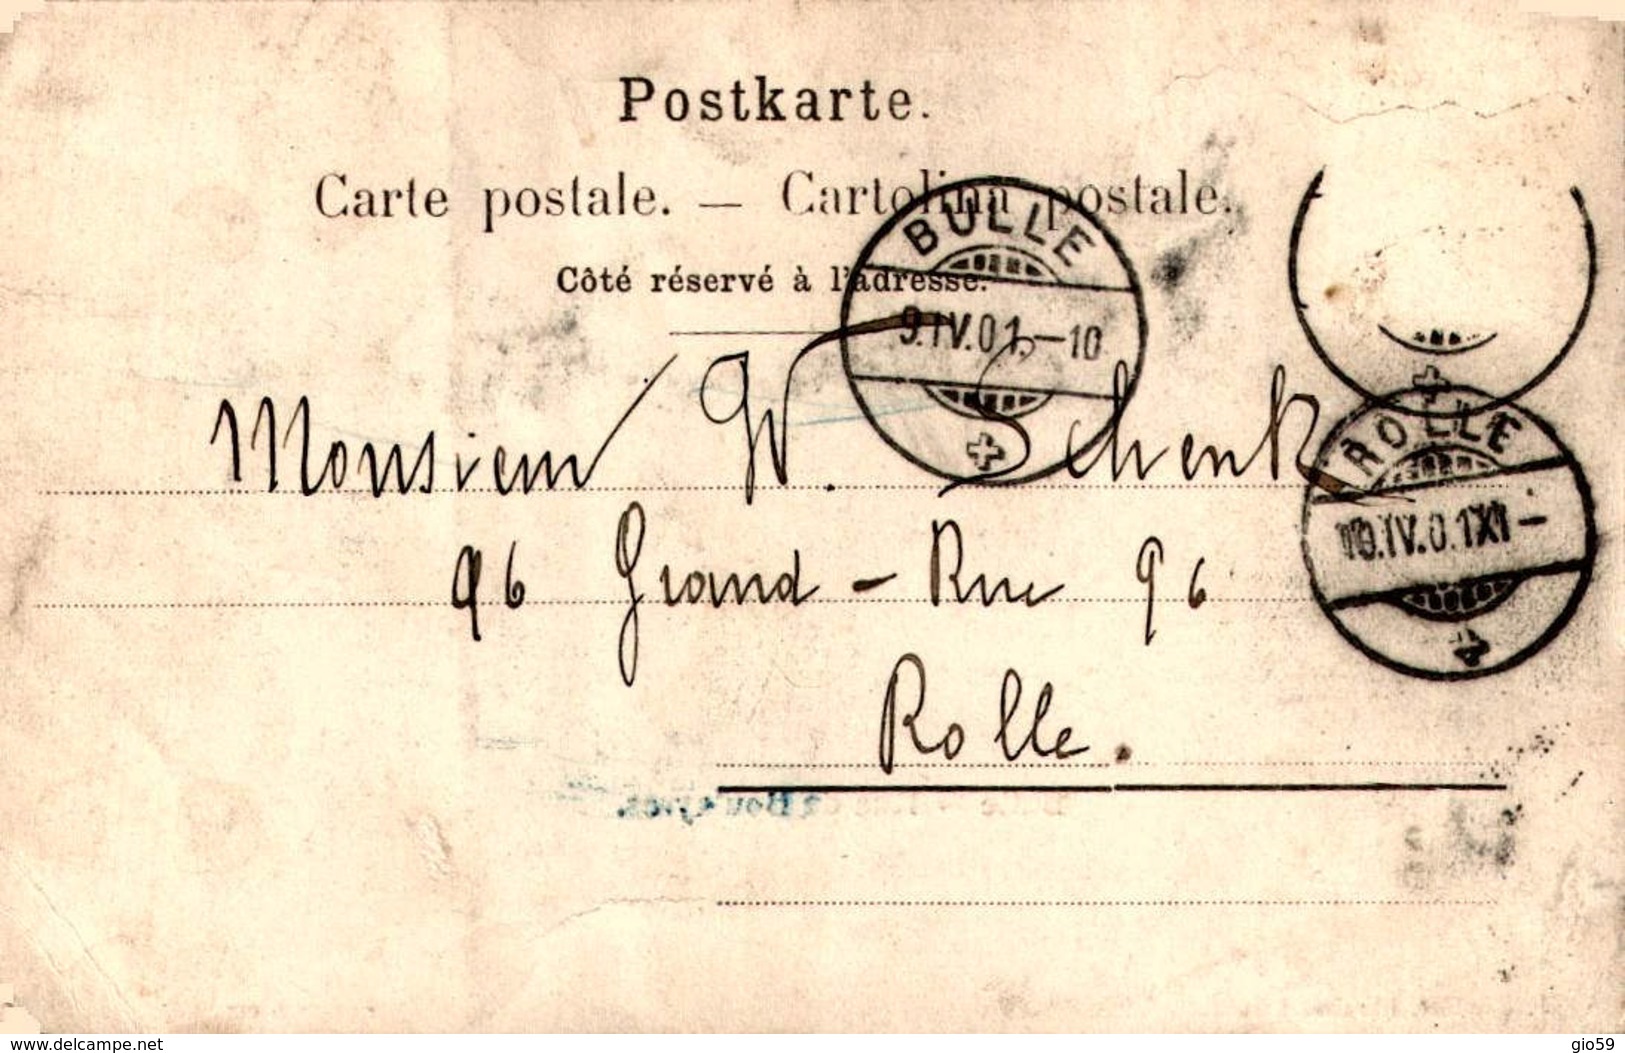 Postkarte.
Carte postale. — Cartolina postale.
Côté réservé à l'adresse.
BULLE
9.IV.01.–10
Monsieur W. Schenk
96 Grand-Rue 96
Rolle.
ROLLE
10.IV.01 XI–
www.delcampe.net
gio59